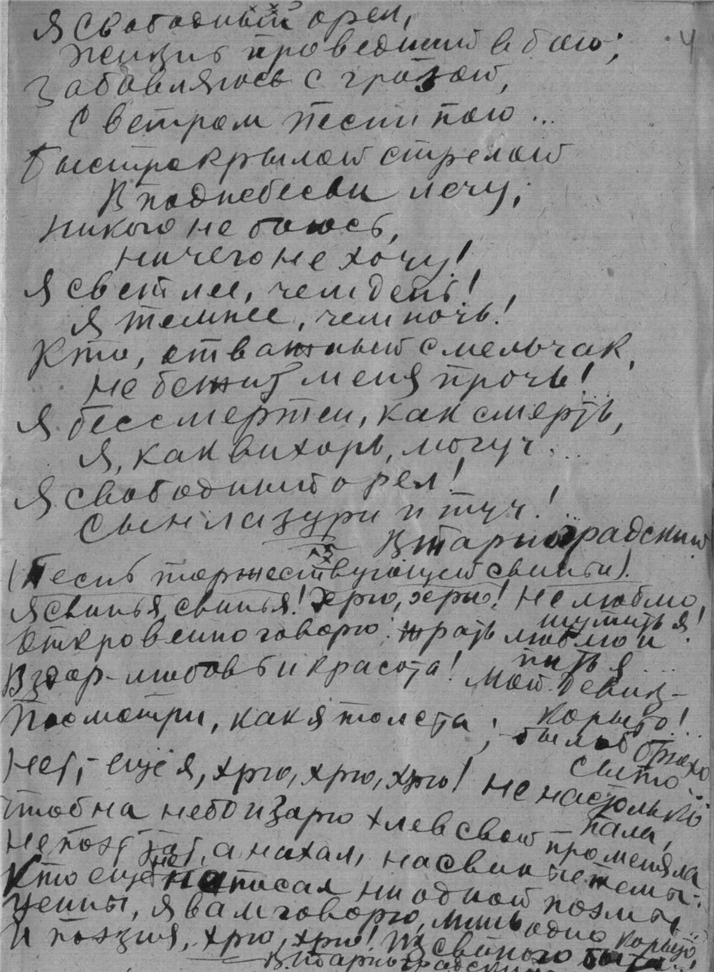 Я свободный орел,
Жизнь проведший в бою;
Забавляюсь с грозой,
С ветром песни пою...
Быстрокрылой стрелой
В поднебесьи лечу;
Никого не боюсь,
Ничего не хочу!
Я светлее, чем день!
Я темнее, чем ночь!
Кто, отважный смельчак,
Не бежит меня прочь!
Я бессмертен, как смерть,
Я, как вихорь, могуч...
Я свободный орел!
Сын лазури и туч!
В Тарноградский
(Песнь торжествующей свиньи).
Я свинья, свинья! Хрю, хрю! Не люблю
шутить я!
Откровенно говорю: жрать люблю и
пить я...
Вздор - любовь и красота! Мой девиз -
корыто!
Посмотри, как я толста; было б брюхо
сыто...
Нет, ещё я, хрю, хрю, хрю! не настолько
пала,
Чтоб на небо и зарю хлев свой променяла
Не поэт тот, а нахал, на свиные темы
Кто ещё не написал ни одной поэмы...
Ценны, я вам говорю, лишь одно корыто,
И поэзия, хрю, хрю! Из свиного быта...
В. Тарноградский